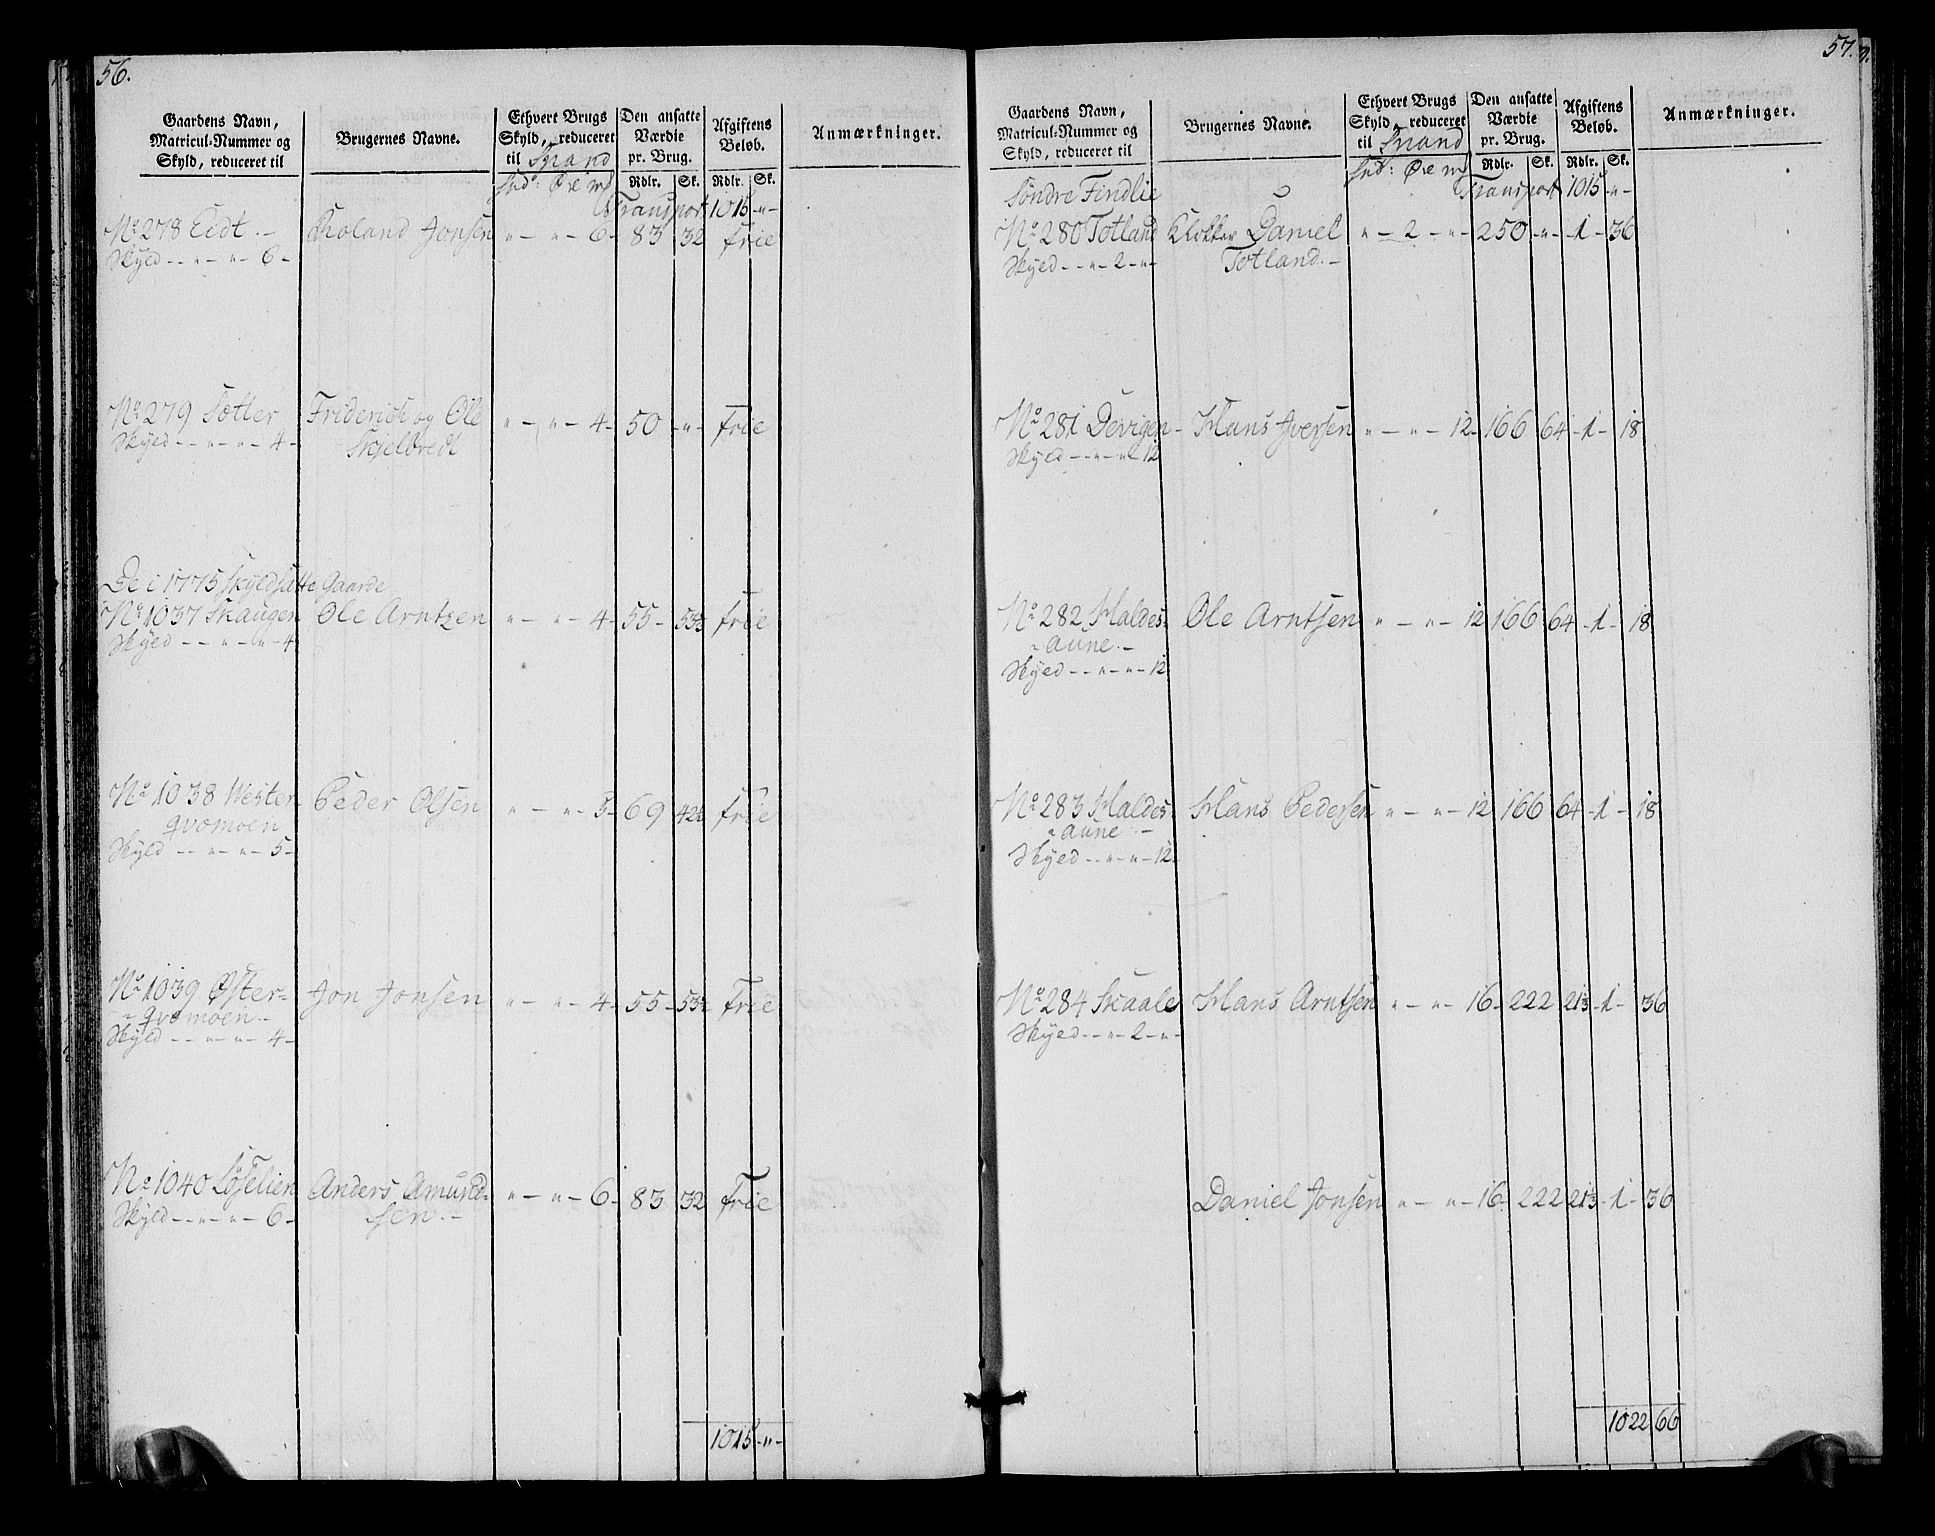 56.
Gaardens Navn, Matricul-Nummer og Skyld, reduceret til
Brugernes Navne.
Ethvert Brugs Skyld, reduceret til Spand
Den ansatte Værdie pr. Brug.
Afgiftens Beløb.
Anmærkninger.
Rdlr. Sk. Rdlr. Sk.
Transport 1015 -"-
No 278 Eidt.- Roland Jonsen " - " - 6 - 83 32 frie
Skyld - - " - " - 6 -
No 279 Sætter Friderich og Ole " - " - 4 - 50 -"- frie
Skyld - - " - " - 4 - Skjelbredt
De i 1775 skyldsatte Gaarde
No 1037 Skaugen Ole Arntzen " - " - 4 - 55 - 53⅓ frie
Skyld - - " - " - 4
No 1038 Wester- Peder Olsen " - " - 5 - 69 42⅔ frie
qvæmoen
Skyld - - " - " - 5 -
No 1039 Øster- Jon Jonsen " - " - 4 - 55 - 53⅓ frie
qvæmoen -
Skyld - - " - " - 4 -
No 1040 Løfelien Anders Amund- " - " - 6 - 83 32 frie
Skyld - - " - " - 6 - sen. -
1015 -"-
57.
Gaardens Navn, Matricul-Nummer og Skyld, reduceret til
Brugernes Navne.
Ethvert Brugs Skyld, reduceret til Spand
Den ansatte Værdie pr. Brug.
Afgiftens Beløb.
Anmærkninger.
Rdlr. Sk. Rdlr. Sk.
Søndre Findlie Transport 1015 -"-
No 280 Totland Klokker Daniel " - 2 - " - 250 -"- -1- 36
Skyld - - " - 2 - " - Totland. -
No 281 Devigen - Hans Iversen " - " - 12 - 166 64 -1- 18
Skyld - - " - " - 12
No 282 Haldes- Ole Arntsen " - " - 12 166 64 -1- 18
aune. -
Skyld - - " - " - 12
No 283 Haldes- Hans Pedersen " - " - 12 166 64 -1- 18
aune -
Skyld - - " - " - 12 -
No 284 Skaale Hans Arntsen " - " - 16 - 222 21⅓ -1- 36
Skyld - - " - 2 - " -
Daniel Jonsen " - " - 16 - 222 21⅓ -1- 36
1022 66